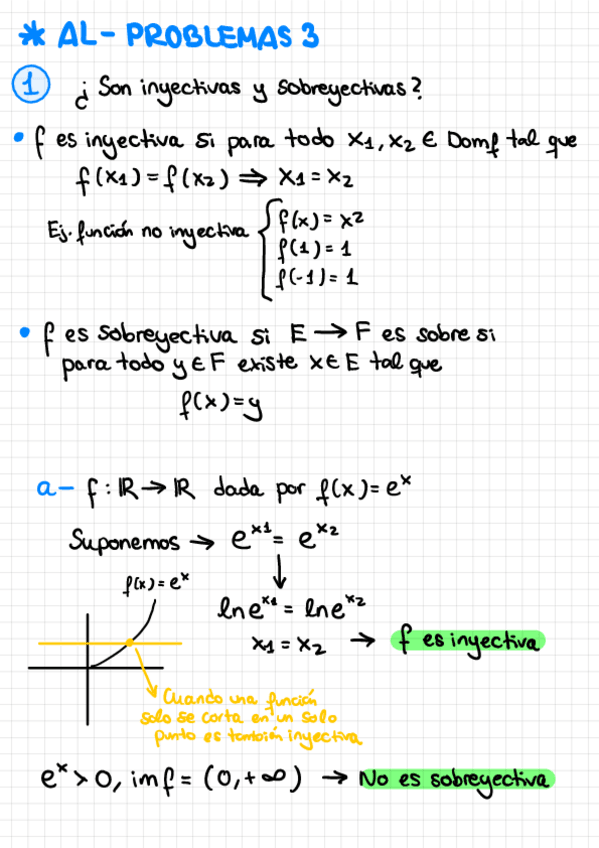 * AL - PROBLEMAS 3
1 ¿Son inyectivas y sobreyectivas?
• f es inyectiva si para todo x1, x2 ∈ Domf tal que
f(x1) = f(x2) ⇒ x1 = x2
Ej. función no inyectiva { f(x) = x²
f(1) = 1
f(-1) = 1
• f es sobreyectiva si E → F es sobre si
para todo y ∈ F existe x ∈ E tal que
f(x) = y
a- f: ℝ → ℝ dada por f(x) = eˣ
Suponemos → e^x1 = e^x2
↓
f(x) = eˣ
ln e^x1 = ln e^x2
x1 = x2 → f es inyectiva
Cuando una función
solo se corta en un solo
punto es también inyectiva
eˣ > 0, im f = (0, +∞) → No es sobreyectiva